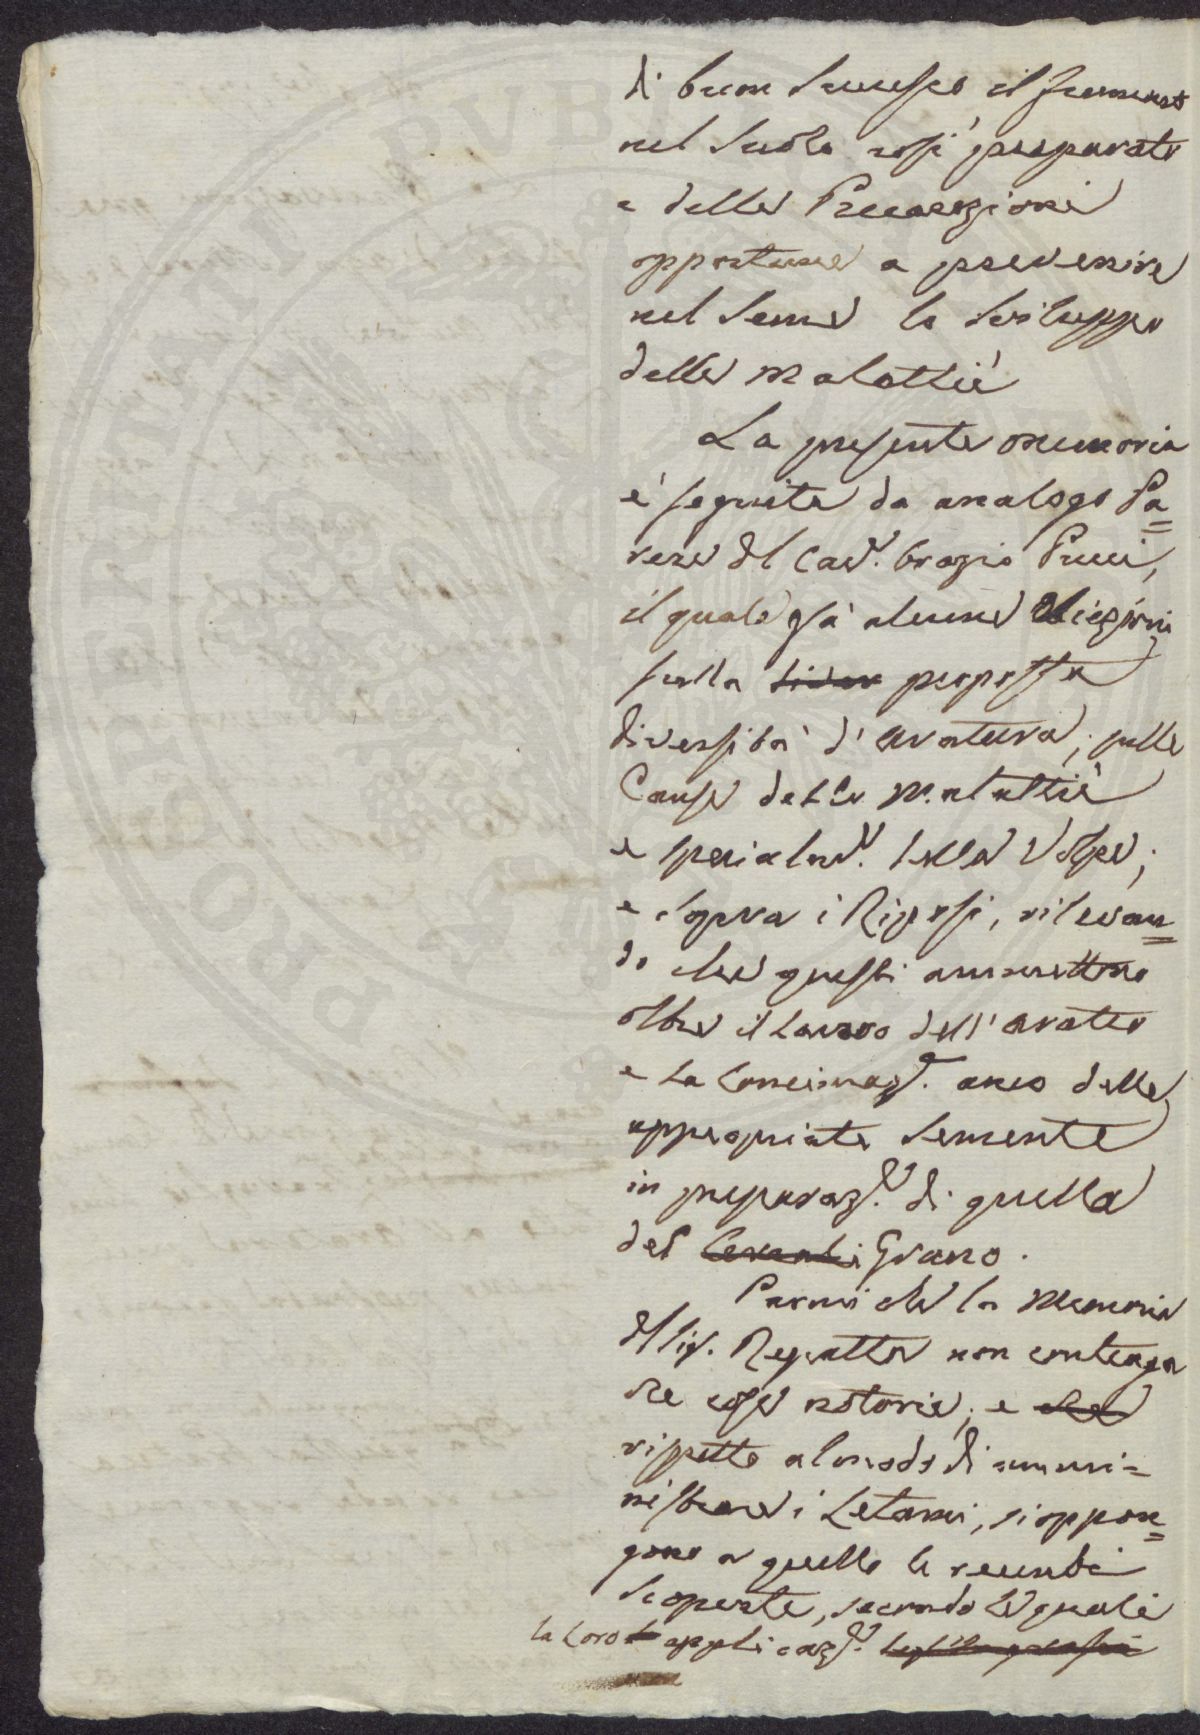 di buon Successo il frumento
nel Suolo così preparato
e delle Precauzioni
opportune a prevenire
nel Seme lo Sviluppo
delle Malattie
La presente memoria
è seguita da analogo Pa=
rere del Cav.e Orazio Pucci,
il quale fa alcune Obiezioni
sulla proposta
diversità d'aratura, sulle
Cause delle Malattie
e specialm.e della Volpe;
e sopra i Riposi, rilevan=
do che questi ammettono
oltre il Lavoro dell'aratro
e la Concimaz.e anco delle
appropriate Semente
in preparaz.e di quella
del Cereali Grano.
Parmi che la Memoria
del Sig. Regnatta non contenga
che cose notorie; e che
rispetto al modo di ammi=
nistrare i Letami, si oppon=
gono a quello le recenti
Scoperte, secondo le quali
la loro applicaz.e